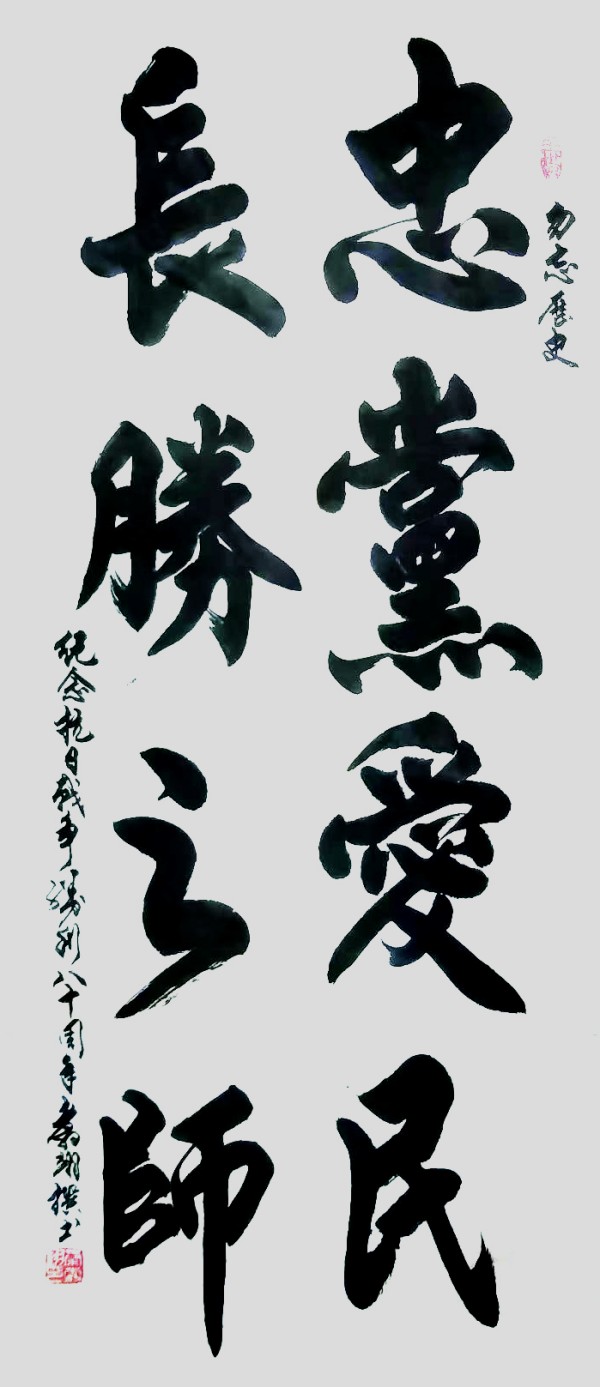 勿忘歷史
忠黨愛民
長勝之師
纪念抗日战争勝利八十周年
撰书